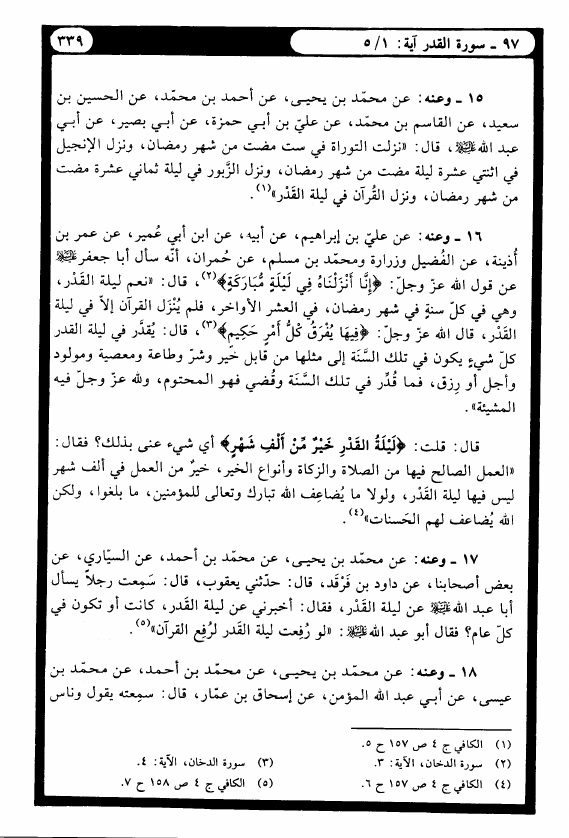 ٩٧ - سورة القدر آية: ١/ ٥
٣٣٩
١٥ - وعنه: عن محمّد بن يحيـى، عن أحمد بن محمّد، عن الحسين بن
سعيد، عن القاسم بن محمّد، عن عليّ بن أبي حمزة، عن أبي بصير، عن أبي
عبد الله عليه السلام، قال: «نزلت التوراة في ست مضت من شهر رمضان، ونزل الإنجيل
في اثنتي عشرة ليلة مضت من شهر رمضان، ونزل الزَّبور في ليلة ثماني عشرة مضت
من شهر رمضان، ونزل القُرآن في ليلة القَدْر»(١).
١٦ - وعنه: عن عليّ بن إبراهيم، عن أبيه، عن ابن أبي عُمير، عن عمر بن
أُذينة، عن الفُضيل وزرارة ومحمّد بن مسلم، عن حُمران، أنّه سأل أبا جعفر عليه السلام
عن قول الله عزّ وجلّ: ﴿إِنَّا أَنْزَلْنَاهُ فِي لَيْلَةٍ مُّبَارَكَةٍ﴾(٢)، قال: «نعم ليلة القَدْر،
وهي في كلّ سنةٍ في شهر رمضان، في العشر الأواخر، فلم يُنْزَل القرآن إلاّ في ليلة
القَدْر، قال الله عزّ وجلّ: ﴿فِيهَا يُفْرَقُ كُلُّ أَمْرٍ حَكِيمٍ﴾(٣)، قال: يُقدَّر في ليلة القدر
كلّ شيءٍ يكون في تلك السَّنَة إلى مثلها من قابل خير وشرّ وطاعة ومعصية ومولود
وأجل أو رِزق، فما قُدِّر في تلك السَّنَة وقُضي فهو المحتوم، ولله عزّ وجلّ فيه
المشيئة».
قال: قلت: ﴿لَيْلَةُ القَدْرِ خَيْرٌ مِّنْ أَلْفِ شَهْرٍ﴾ أي شيء عنى بذلك؟ فقال:
«العمل الصالح فيها من الصلاة والزكاة وأنواع الخير، خيرٌ من العمل في ألف شهر
ليس فيها ليلة القَدْر، ولولا ما يُضاعِف الله تبارك وتعالى للمؤمنين، ما بلغوا، ولكن
الله يُضاعف لهم الحَسنات»(٤).
١٧ - وعنه: عن محمّد بن يحيـى، عن محمّد بن أحمد، عن السيّاري، عن
بعض أصحابنا، عن داود بن فَرْقَد، قال: حدّثني يعقوب، قال: سَمِعت رجلاً يسأل
أبا عبد الله عليه السلام عن ليلة القَدْر، فقال: أخبرني عن ليلة القَدر، كانت أو تكون في
كلّ عام؟ فقال أبو عبد الله عليه السلام: «لو رُفِعت ليلة القَدر لرُفِع القرآن»(٥).
١٨ - وعنه: عن محمّد بن يحيـى، عن محمّد بن أحمد، عن محمّد بن
عيسى، عن أبي عبد الله المؤمن، عن إسحاق بن عمّار، قال: سمِعته يقول وناس
(١) الكافي ج ٤ ص ١٥٧ ح ٥.
(٢) سورة الدخان، الآية: ٣.
(٣) سورة الدخان، الآية: ٤.
(٤) الكافي ج ٤ ص ١٥٧ ح ٦.
(٥) الكافي ج ٤ ص ١٥٨ ح ٧.